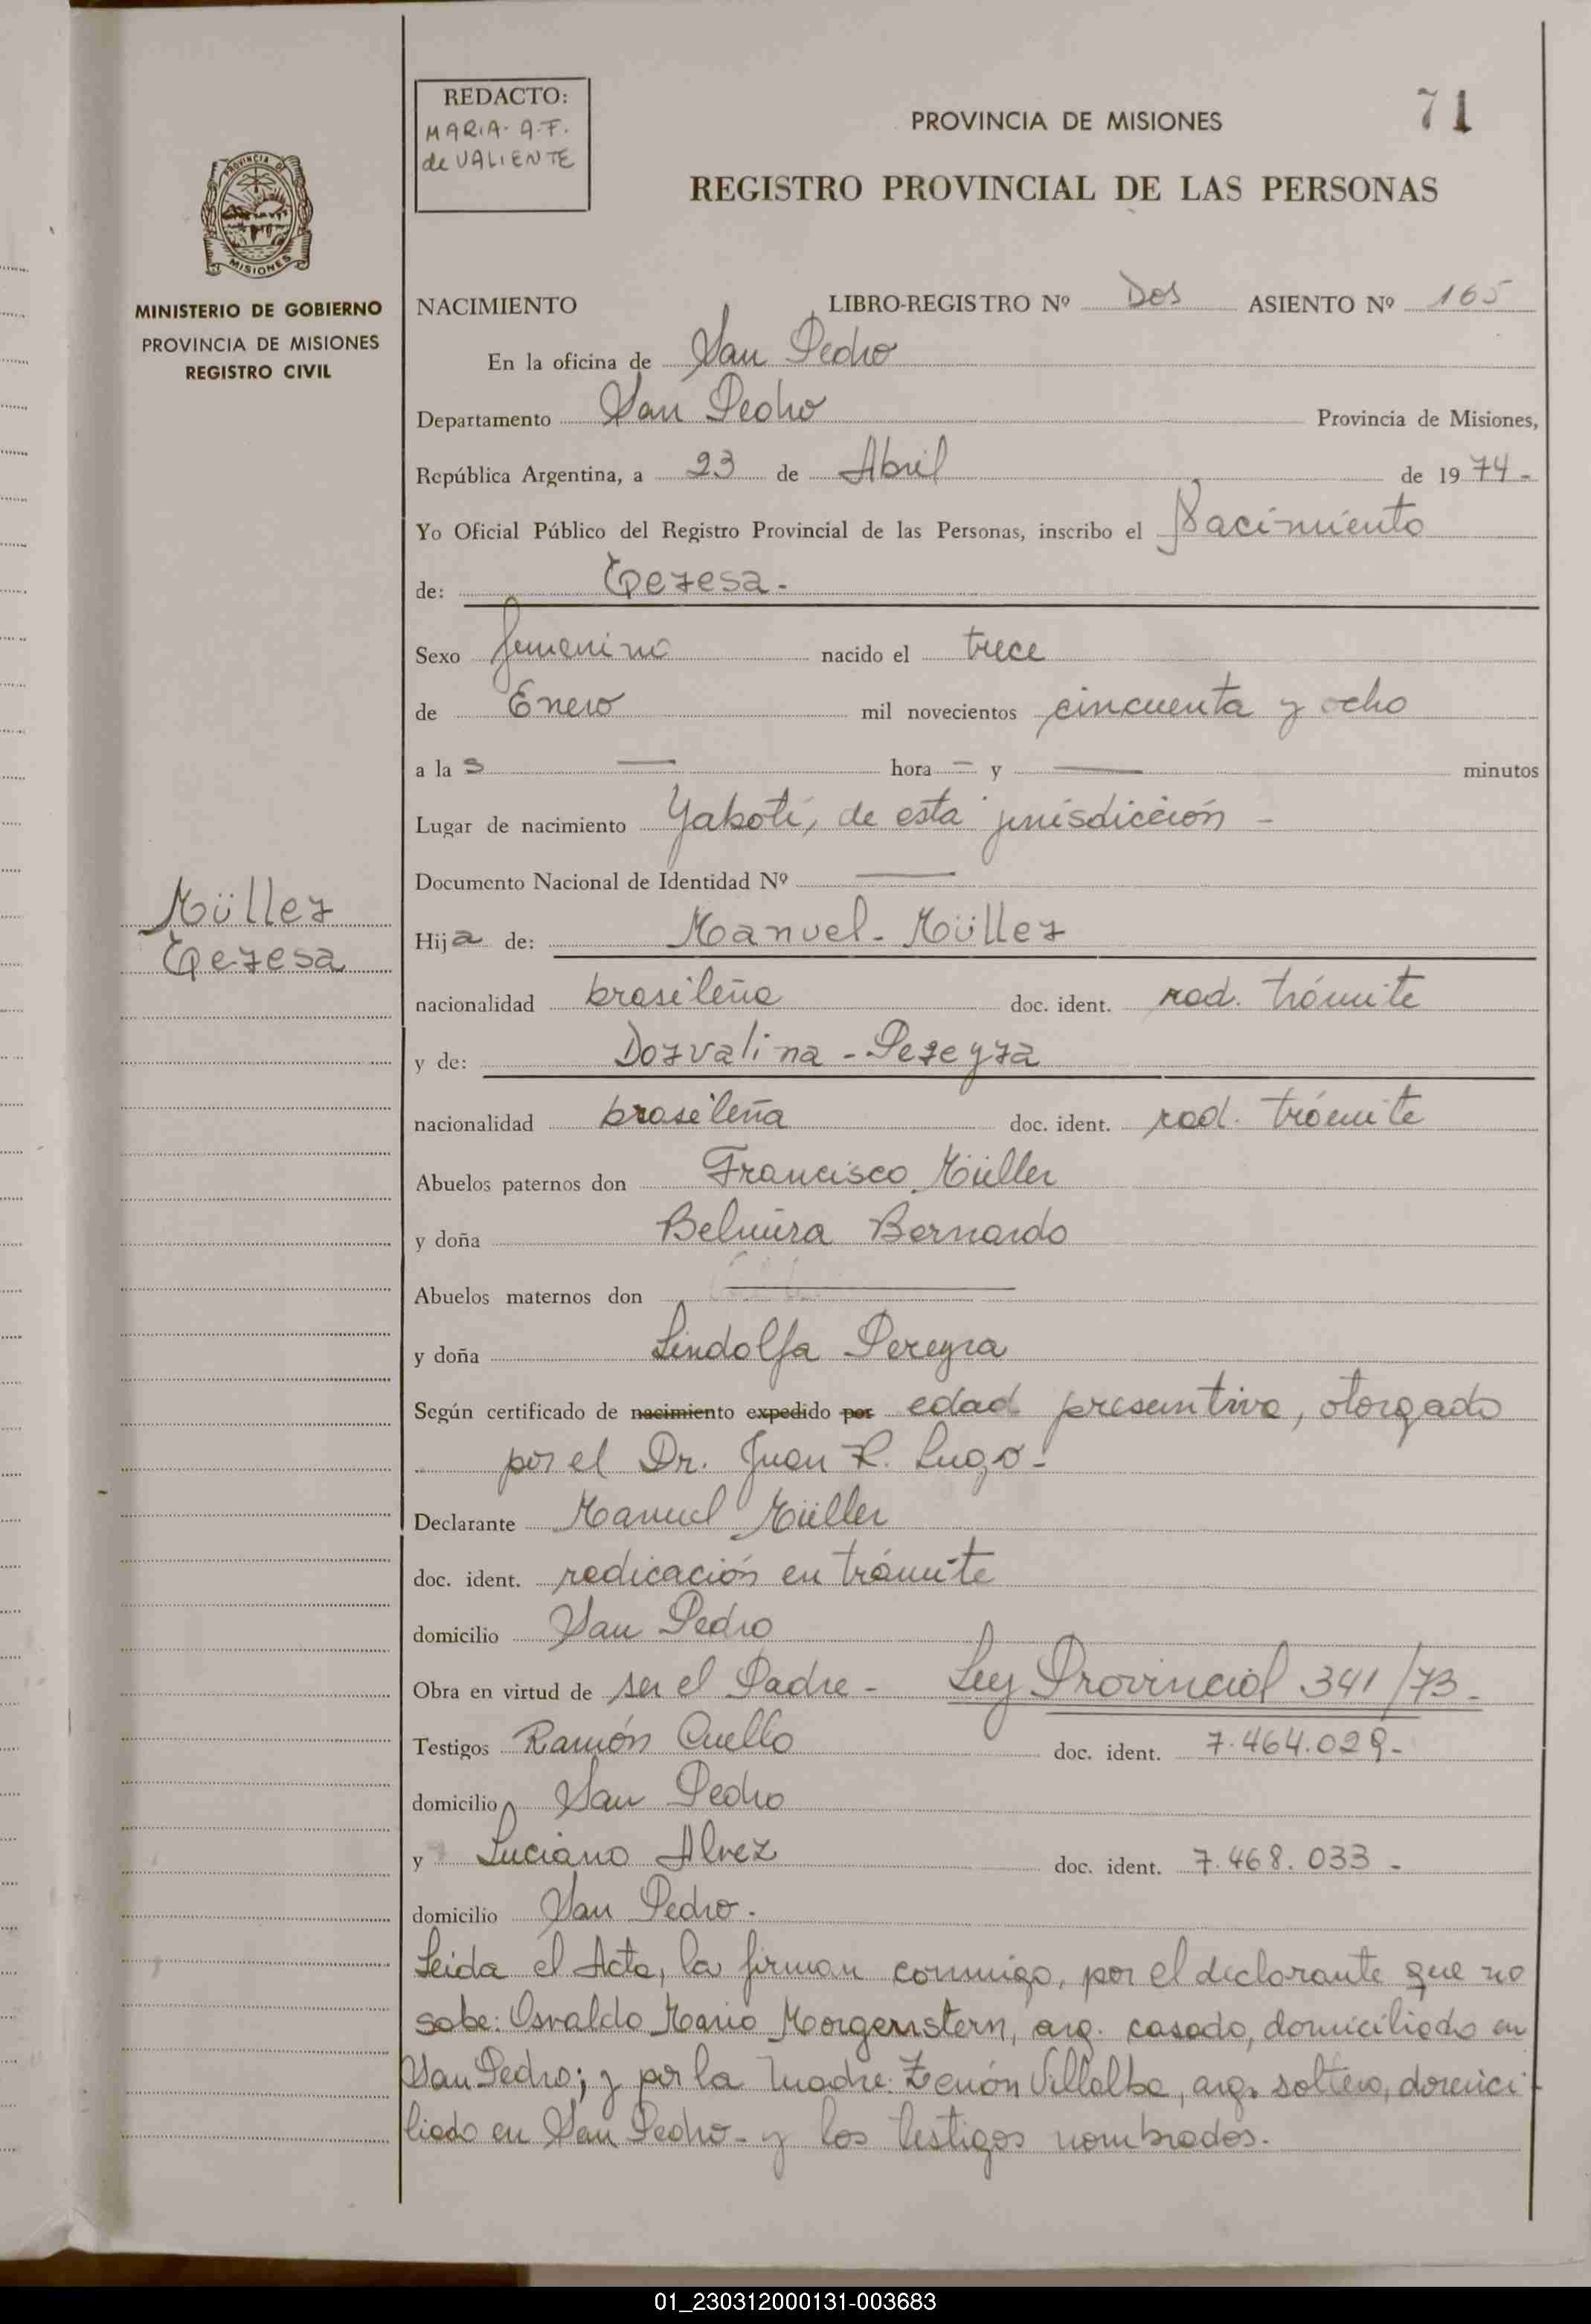 REDACTO:
MARIA. A.F.
de VALIENTE
PROVINCIA DE MISIONES
71
REGISTRO PROVINCIAL DE LAS PERSONAS
PROVINCIA DE
MISIONES
MINISTERIO DE GOBIERNO
PROVINCIA DE MISIONES
REGISTRO CIVIL
NACIMIENTO LIBRO-REGISTRO Nº Dos ASIENTO Nº 165
En la oficina de San Pedro
Departamento San Pedro Provincia de Misiones,
República Argentina, a 23 de Abril de 1974-
Yo Oficial Público del Registro Provincial de las Personas, inscribo el Nacimiento
de: Teresa-
Sexo femenino nacido el trece
de Enero mil novecientos cincuenta y ocho
a la s — hora — y — minutos
Lugar de nacimiento Yaboti, de esta jurisdicción -
Documento Nacional de Identidad Nº —
Müller
Teresa
Hija de: Manuel- Müller
nacionalidad brasileña doc. ident. rad. trámite
y de: Dorvalina - Pereyra
nacionalidad brasileña doc. ident. rad. trámite
Abuelos paternos don Francisco Müller
y doña Belmira Bernardo
Abuelos maternos don —
y doña Lindolfa Pereyra
Según certificado de nacimiento expedido por edad presuntiva, otorgado
por el Dr. Juan R. Lugo-
Declarante Manuel Müller
doc. ident. radicación en trámite
domicilio San Pedro
Obra en virtud de ser el Padre - Ley Provincial 341/73-
Testigos Ramón Cuello doc. ident. 7.464.029-
domicilio San Pedro
y Luciano Alvez doc. ident. 7.468.033-
domicilio San Pedro.
Leida el Acta, la firman conmigo, por el declarante que no
sabe: Osvaldo Mario Morgenstern, arg. casado, domiciliado en
San Pedro; y por la madre: Zenón Villalba, arg. soltero, domici-
liado en San Pedro- y los testigos nombrados.
01_230312000131-003683